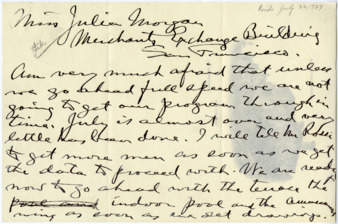 Miss Julia Morgan
Merchants Exchange Building
San Francisco.
Am very much afraid that unless
we go ahead full speed we are not
going to get our program through in
time. July is almost over and very
little has been done. I will tell Mr Rossi
to get more men as soon as we get
the data to proceed with. We are ready
now to go ahead with the terrace the
pool and indoor pool and the
wing as soon as we get drawings.